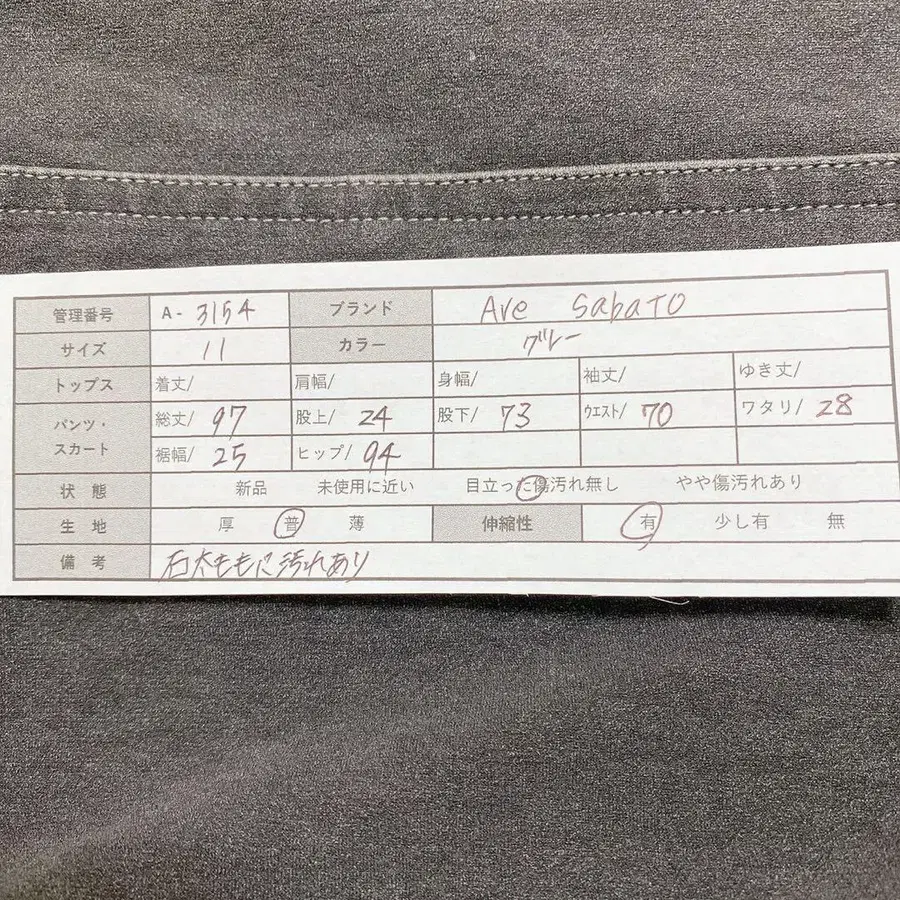 管理番号 A- 3154 ブランド Ave SabaTO
サイズ 11 カラー グレー
トップス 着丈/ 肩幅/ 身幅/ 袖丈/ ゆき丈/
パンツ・スカート 総丈/ 97 股上/ 24 股下/ 73 ウエスト/ 70 ワタリ/ 28
裾幅/ 25 ヒップ/ 94
状態 新品 未使用に近い 目立った傷汚れ無し やや傷汚れあり
生地 厚 普 薄 伸縮性 有 少し有 無
備考 右太ももに汚れあり